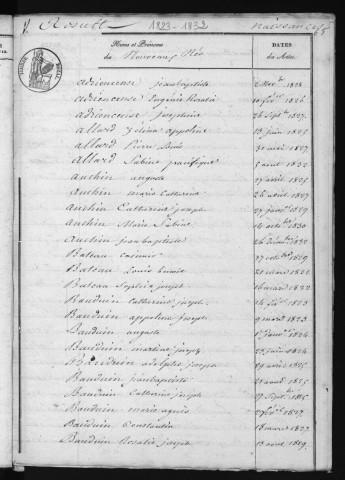 Rosult 1823-1832 naissances
Noms et Prénoms
des Nouveaux Nés
DATES
des Actes
adriencense jean baptiste
adriencense Eugénie Rosalie 1826
adriencense josephine 26 Sept. 1827
allard Zelina appoline 13 juin 1825
allard Pierre Louis 1827
allard Sabine pacifique 5 aout 1832
auchin auguste 17 avril 1825
auchin marie Catherine 26 avril 1827
auchin Catherine joseph 27 janv. 1829
auchin Marie Sabine 14 octob. 1830
auchin jean baptiste 1832
Bateau Casimir 17 octob. 1829
Bateau Louis benoit
Bateau Sophie joseph 16 mars 1832
Bauduin Catherine joseph 1823
Bauduin appoline joseph 9 mars 1823
Bauduin auguste 1er janv. 1824
Bauduin martine joseph 22 juin 1824
Bauduin adolphe joseph 19 avril 1825
Bauduin jean baptiste 1825
Bauduin Catherine joseph 27 Sept. 1825
Bauduin marie agnés 1827
Bauduin Constantin 18 mars 1827
Bauduin Rosalie joseph 13 avril 1829